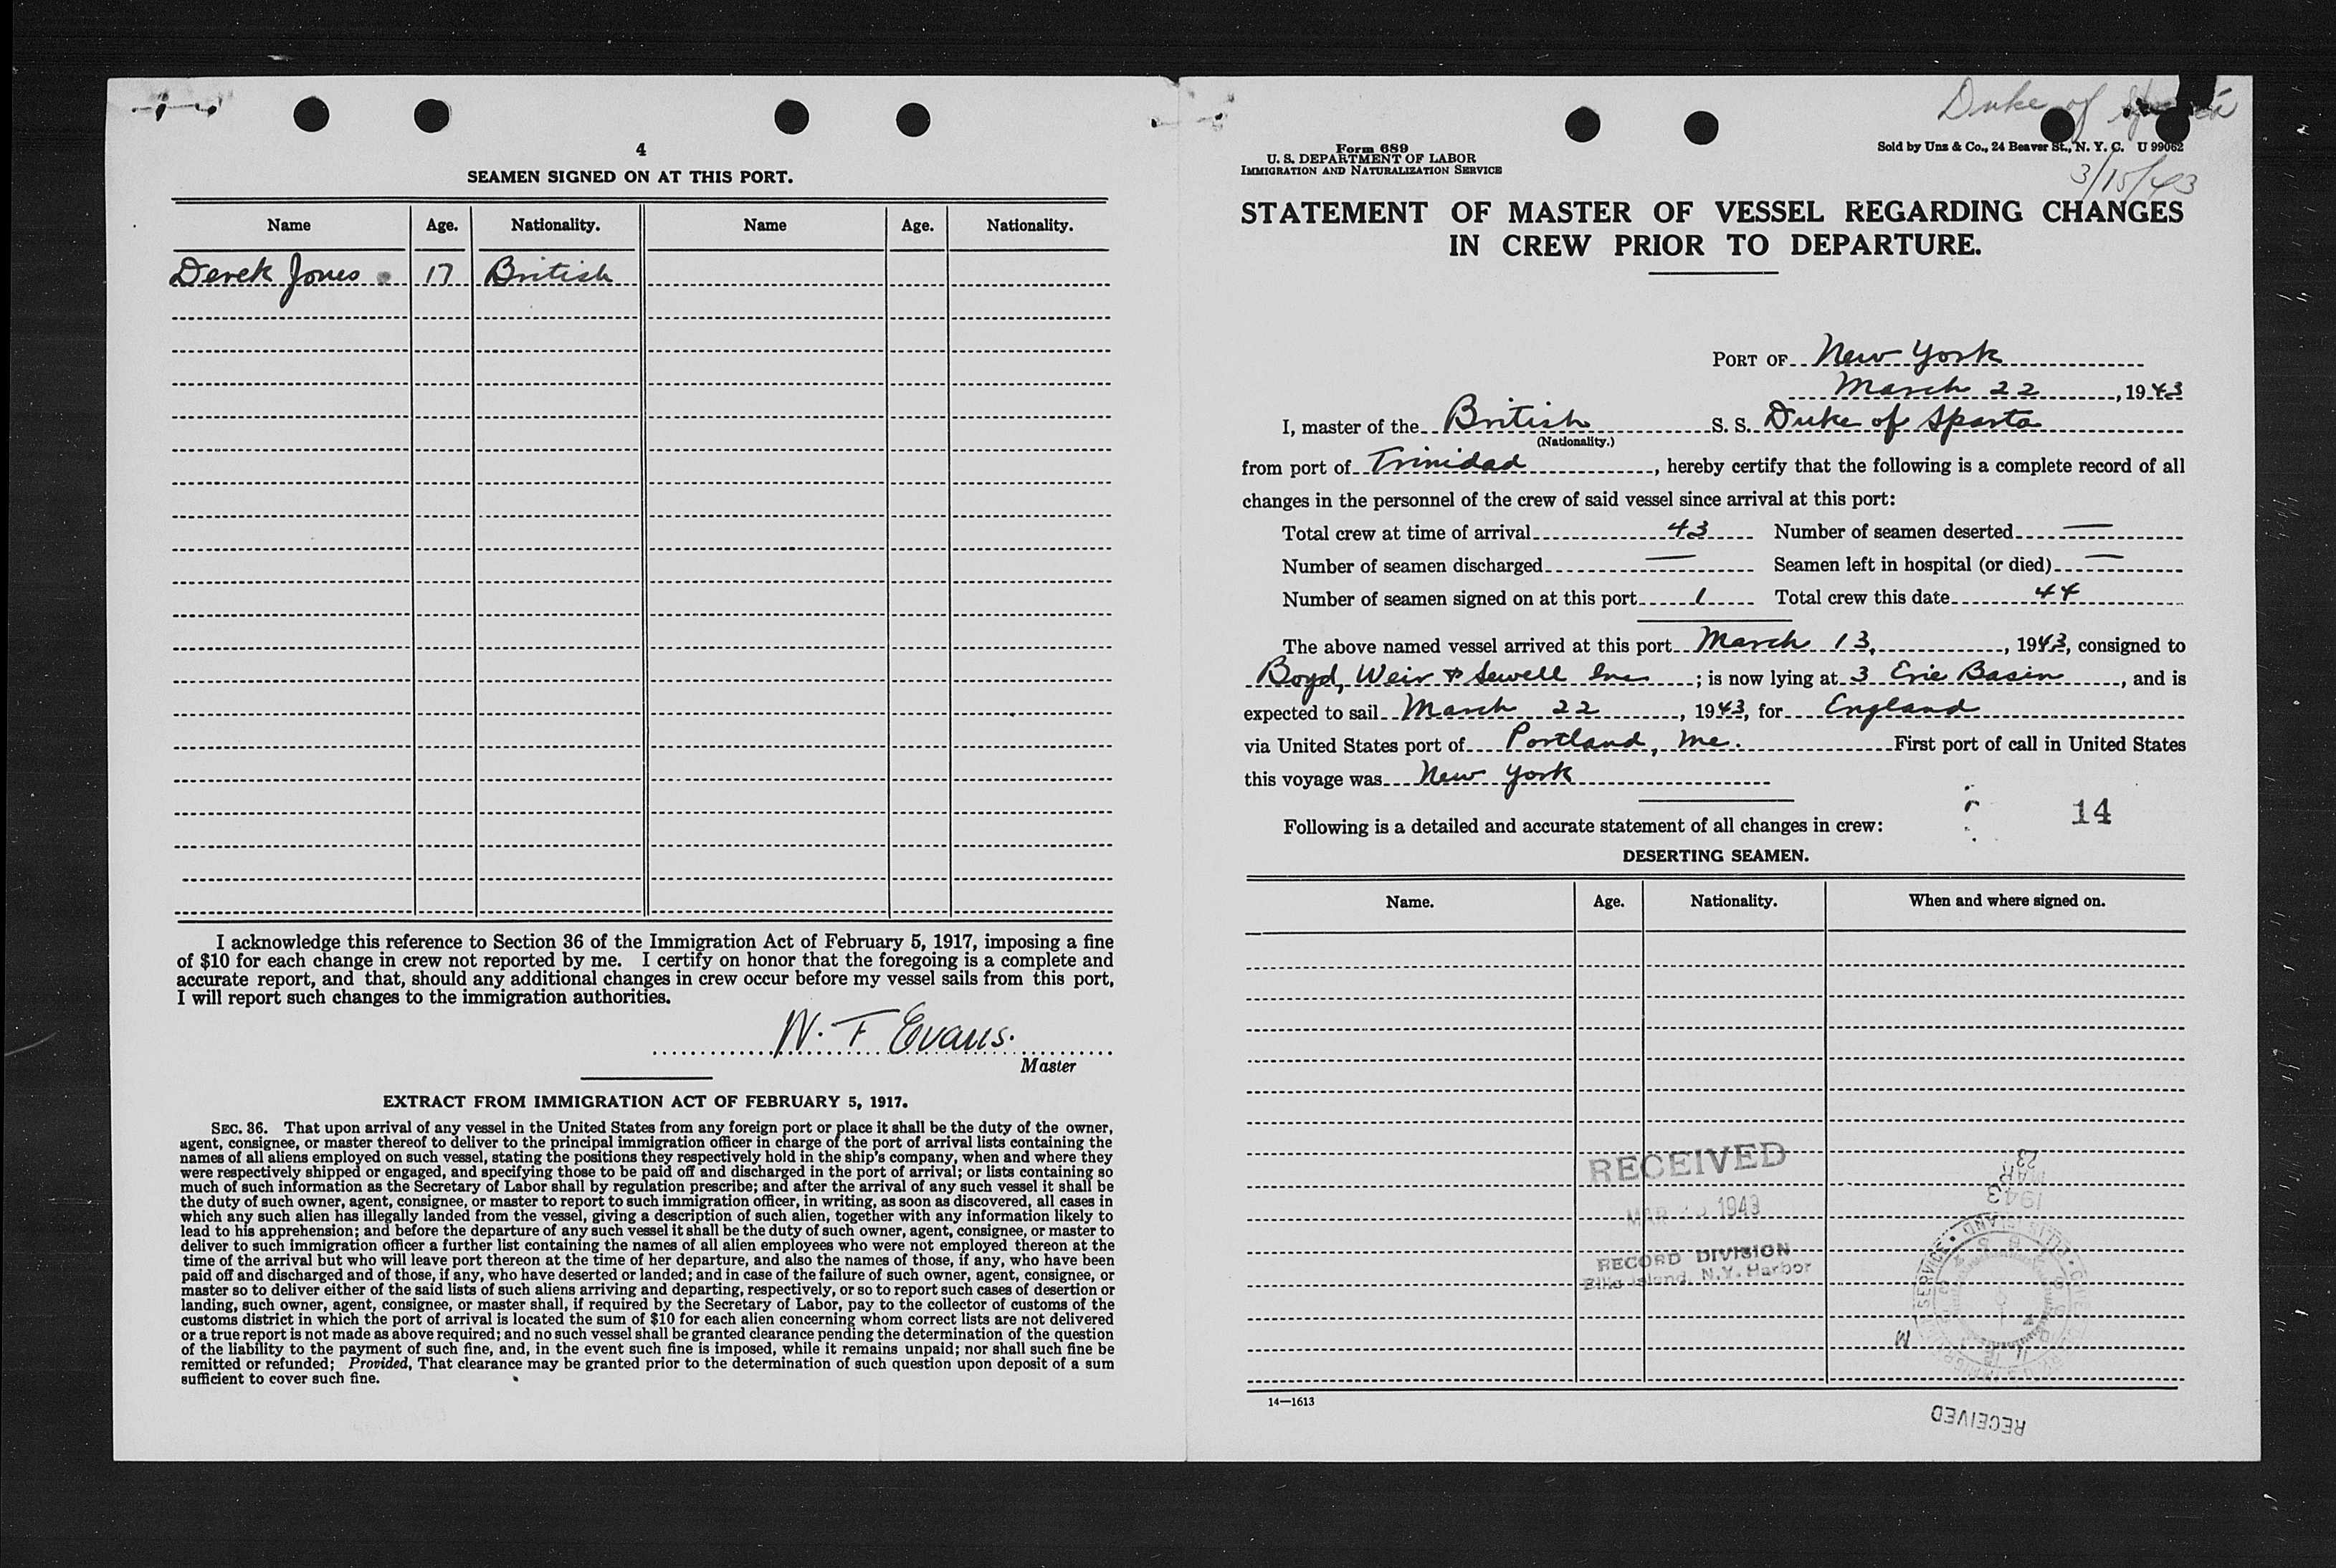 4
SEAMEN SIGNED ON AT THIS PORT.
Name Age. Nationality. Name Age. Nationality.
Derek Jones 17 British
I acknowledge this reference to Section 36 of the Immigration Act of February 5, 1917, imposing a fine
of $10 for each change in crew not reported by me. I certify on honor that the foregoing is a complete and
accurate report, and that, should any additional changes in crew occur before my vessel sails from this port,
I will report such changes to the immigration authorities.
W. F Evans.
Master
EXTRACT FROM IMMIGRATION ACT OF FEBRUARY 5, 1917.
SEC. 36. That upon arrival of any vessel in the United States from any foreign port or place it shall be the duty of the owner,
agent, consignee, or master thereof to deliver to the principal immigration officer in charge of the port of arrival lists containing the
names of all aliens employed on such vessel, stating the positions they respectively hold in the ship's company, when and where they
were respectively shipped or engaged, and specifying those to be paid off and discharged in the port of arrival; or lists containing so
much of such information as the Secretary of Labor shall by regulation prescribe; and after the arrival of any such vessel it shall be
the duty of such owner, agent, consignee, or master to report to such immigration officer, in writing, as soon as discovered, all cases in
which any such alien has illegally landed from the vessel, giving a description of such alien, together with any information likely to
lead to his apprehension; and before the departure of any such vessel it shall be the duty of such owner, agent, consignee, or master to
deliver to such immigration officer a further list containing the names of all alien employees who were not employed thereon at the
time of the arrival but who will leave port thereon at the time of her departure, and also the names of those, if any, who have been
paid off and discharged and of those, if any, who have deserted or landed; and in case of the failure of such owner, agent, consignee, or
master so to deliver either of the said lists of such aliens arriving and departing, respectively, or so to report such cases of desertion or
landing, such owner, agent, consignee, or master shall, if required by the Secretary of Labor, pay to the collector of customs of the
customs district in which the port of arrival is located the sum of $10 for each alien concerning whom correct lists are not delivered
or a true report is not made as above required; and no such vessel shall be granted clearance pending the determination of the question
of the liability to the payment of such fine, and, in the event such fine is imposed, while it remains unpaid; nor shall such fine be
remitted or refunded; Provided, That clearance may be granted prior to the determination of such question upon deposit of a sum
sufficient to cover such fine.
Duke of
Form 689
U. S. DEPARTMENT OF LABOR
IMMIGRATION AND NATURALIZATION SERVICE
Sold by Unz & Co., 24 Beaver St., N. Y. C. U 99062
3/15/43
STATEMENT OF MASTER OF VESSEL REGARDING CHANGES
IN CREW PRIOR TO DEPARTURE.
PORT OF New York
March 22, 1943
I, master of the British S. S. Duke of Sparta
(Nationality.)
from port of Trinidad, hereby certify that the following is a complete record of all
changes in the personnel of the crew of said vessel since arrival at this port:
Total crew at time of arrival 43 Number of seamen deserted —
Number of seamen discharged — Seamen left in hospital (or died) —
Number of seamen signed on at this port 1 Total crew this date 44
The above named vessel arrived at this port March 13, 1943, consigned to
Boyd, Weir & Sewell Inc; is now lying at 3 Erie Basin, and is
expected to sail March 22, 1943, for England
via United States port of Portland, Me. First port of call in United States
this voyage was New York
14
Following is a detailed and accurate statement of all changes in crew:
DESERTING SEAMEN.
Name. Age. Nationality. When and where signed on.
RECEIVED
MAR 1943
RECORD DIVISION
Ellis Island, N.Y. Harbor
23
MAR
1943
M
14—1613
RECEIVED